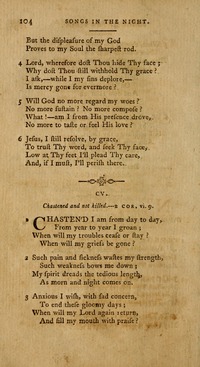 104 SONGS IN THE NIGHT.
But the displeasure of my God
Proves to my Soul the sharpest rod.
4 Lord, wherefore dost Thou hide Thy face;
Why dost Thou still withhold Thy grace?
I ask,—while I my sins deplore,—
Is mercy gone for evermore?
5 Will God no more regard my woes?
No more sustain? No more compose?
What!—am I from His presence drove,
No more to taste or feel His love?
6 Jesus, I still resolve, by grace,
To trust Thy word, and seek Thy face,
Low at Thy feet I'll plead Thy care,
And, if I must, I'll perish there.
CV.
Chastened and not killed.—2 COR. vi. 9.
1 CHASTEN'D I am from day to day,
From year to year I groan;
When will my troubles cease or stay?
When will my griefs be gone?
2 Such pain and sickness wastes my strength,
Such weakness bows me down;
My spirit dreads the tedious length,
As morn and night comes on.
3 Anxious I wish, with sad concern,
To end these gloomy days;
When will my Lord again return,
And fill my mouth with praise?